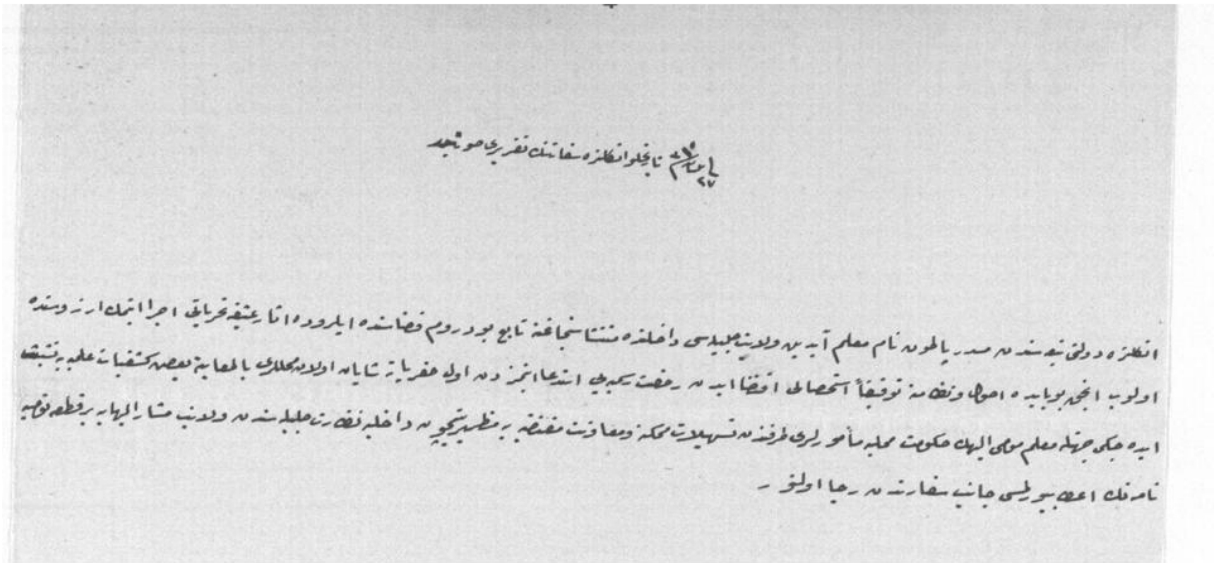 تابخلو انكلتره سفارتنك تقريری صورتيدر
انكلتره دولتی تبعه‌سندن مسدر پاطون نام معلم آيدين ولايت جليله‌سی داخلنده منتشا سنجاغنه تابع بودروم قضاسنده ايلروده اثار عتيقه تحرياتی اجرا ايتمك ارزوسنده
اولوب انجق بوبابده اصول ونظامنه توفيقاً استحصالی اقتضا ايدن رخصت رسميه‌يی استدعا ايتمزدن اول حفرياته شايان اولان محللری بالمعاينه بعض كشفيات علميه‌يه تشبث
ايده‌جكی جهتله معلم مومی اليهك حكومت محليه مأمورلری طرفندن تسهيلات ممكنه ومعاونت مقتضيه‌يه مظهريتيچون داخليه نظارت جليله‌سندن ولايت مشار اليهايه بر قطعه توصيه
نامه‌نك اعطا بيورلمسی جانب سفارتدن رجا اولنور